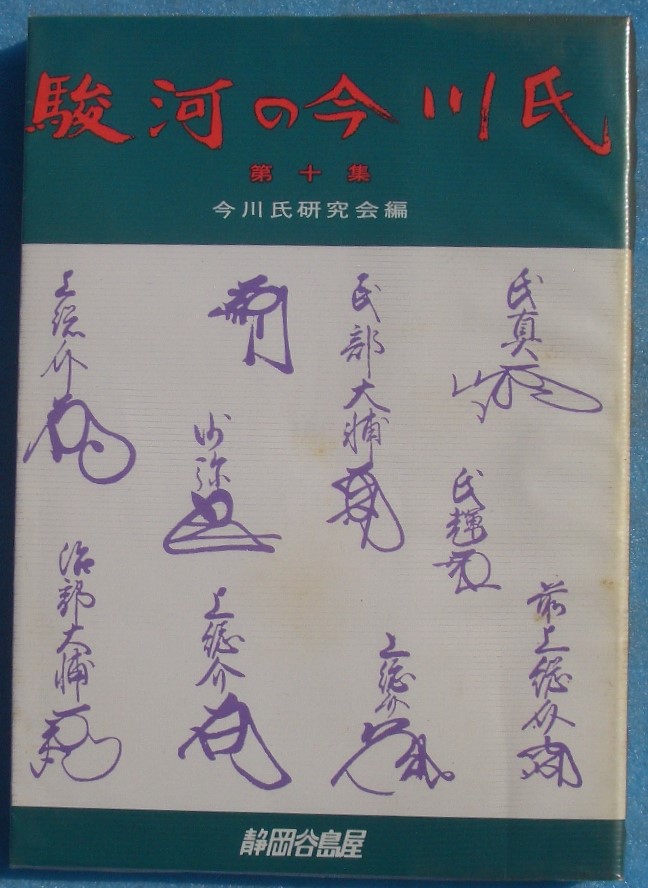 駿河の今川氏
第十集
今川氏研究会編
氏真
民部大輔
上総介
沙弥
氏輝
前上総介
上総介
上総介
治部大輔
静岡谷島屋